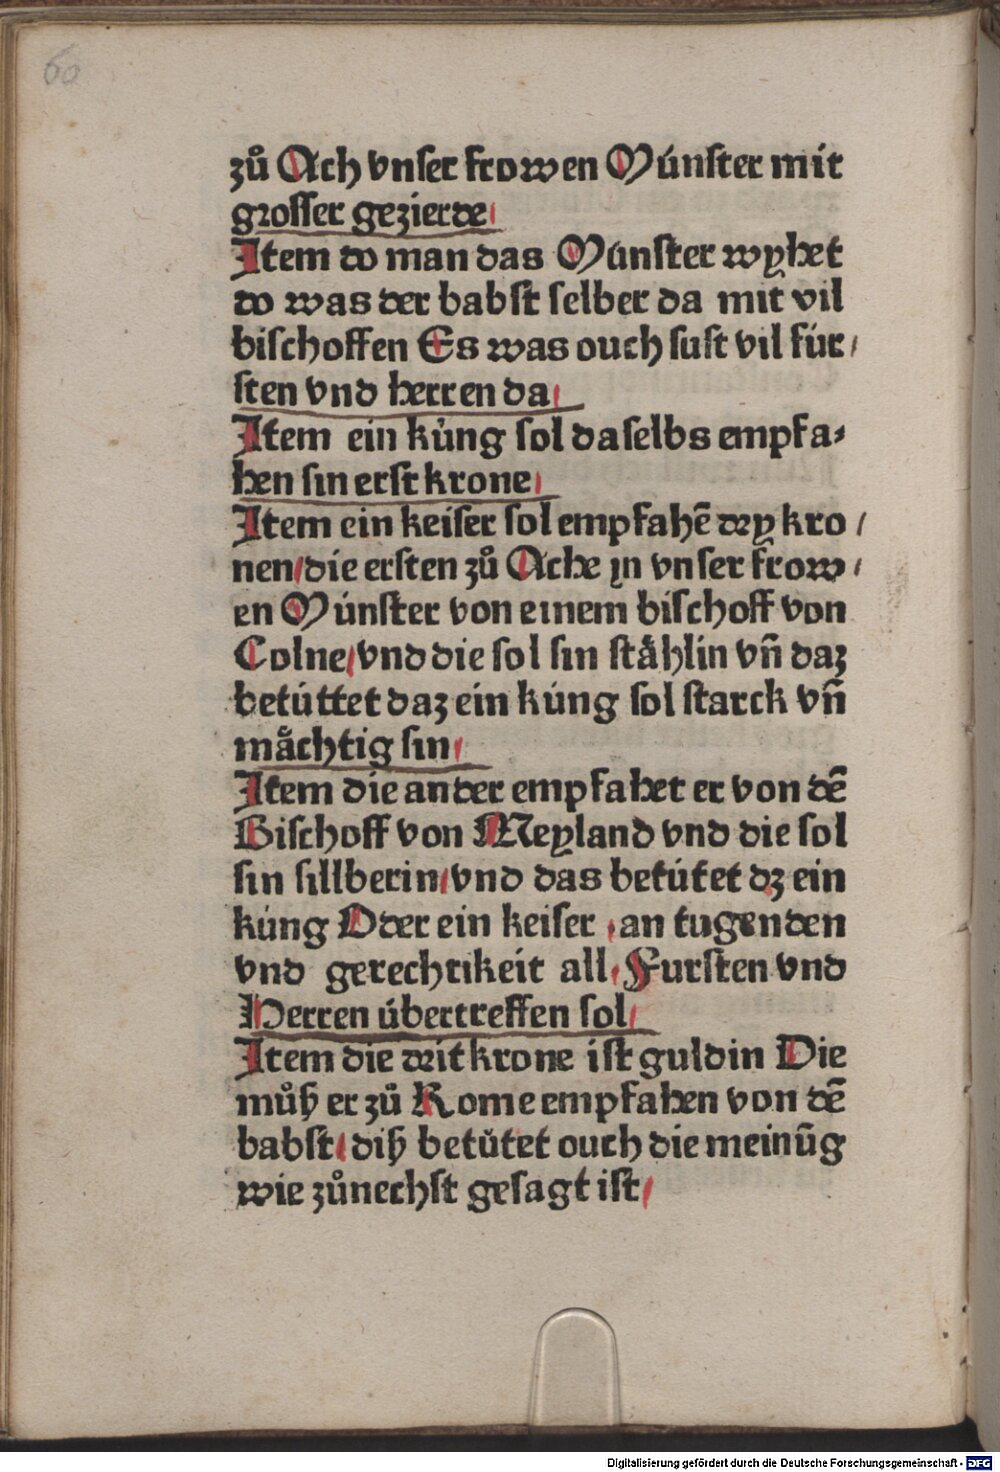 60
zů Ach vnser frowen Múnster mit
grosser gezierde/
Item do man das Múnster wyhet
do was der babst selber da mit vil
bischoffen Es was ouch sust vil für/
sten vnd herren da/
Item ein kúng sol daselbs empfa⸗
hen sin erst krone/
Item ein keiser sol empfahē dry kro/
nen/die ersten zů Ache in vnser frow/
en Múnster von einem bischoff von
Colne/vnd die sol sin ståhlin vñ daz
betúttet daz ein kúng sol starck vñ
måchtig sin/
Item die ander empfahet er von dē
Bischoff von Meyland vnd die sol
sin sillberin/vnd das betútet dz ein
kúng Oder ein keiser /an tugenden
vnd gerechtikeit all/ Fursten vnd
Herren úbertreffen sol/
Item die drit krone ist guldin Die
můß er zů Rome empfahen von dē
babst/ diß betútet ouch die meinūg
wie zůnechst gesagt ist/
Digitalisierung gefördert durch die Deutsche Forschungsgemeinschaft - DFG